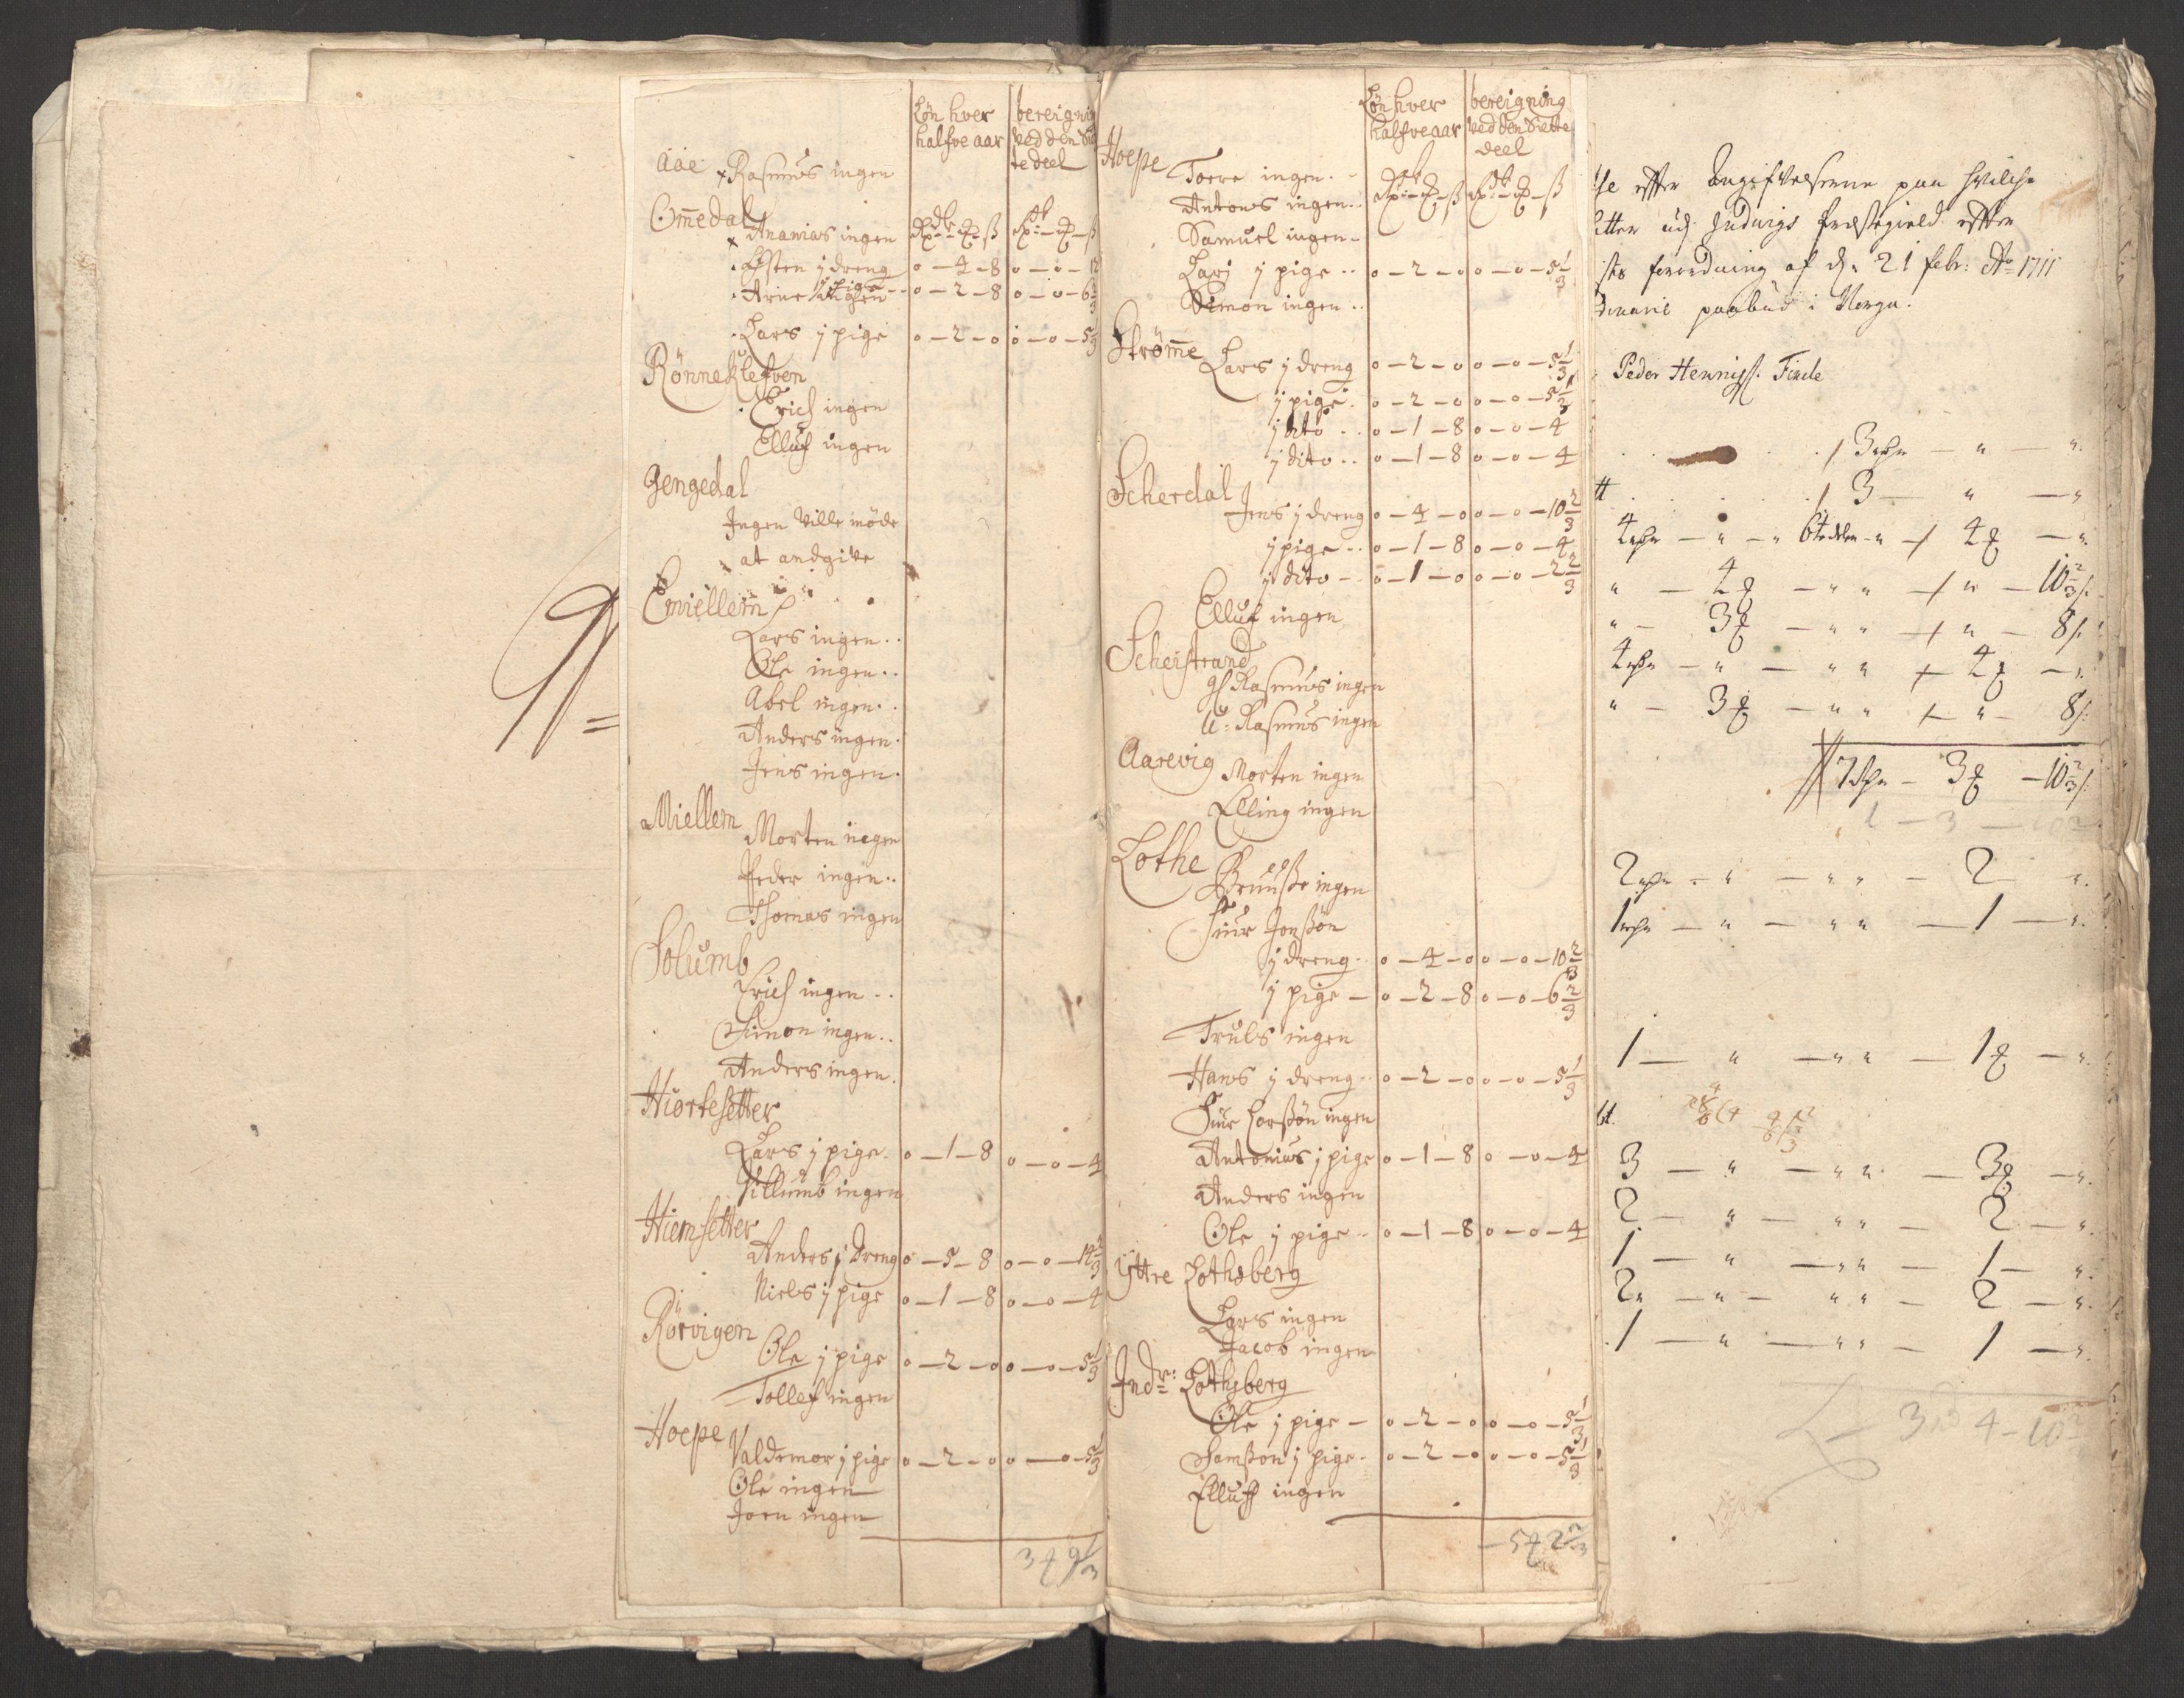 Løn hver halfve aar
bereigning ved den Siette deel
Aae Rasmus ingen
Ommedal
Ananias ingen
Østen j dreng 0 – 4 – 8 0 – 0 – 12
Arne j pige 0 – 2 – 8 0 – 0 – 6 2/3
Lars j pige 0 – 2 – 0 0 – 0 – 5 1/3
Rønneklefven
Erich ingen
Elluf ingen
Gengedal
Ingen Ville møde
at andgive
Emiellem
Lars ingen
Ole ingen
Abel ingen
Anders ingen
Jens ingen
Miellem
Morten ingen
Peder ingen
Thomas ingen
Solumb
Erich ingen
Simon ingen
Anders ingen
Hiortesetter
Lars j pige 0 – 1 – 8 0 – 0 – 4
Villumb ingen
Hiemsetter
Anders j dreng 0 – 5 – 8 0 – 0 – 14 2/3
Niels j pige 0 – 1 – 8 0 – 0 – 4
Rörvigen
Ole j pige 0 – 2 – 0 0 – 0 – 5 1/3
Tollef ingen
Hoepe
Valdemor j pige 0 – 2 – 0 0 – 0 – 5 1/3
Ole ingen
Joen ingen
3 9 1/3
Løn hver halfve aar
bereigning ved den Siette deel
Hoepe
Toere ingen
Antonis ingen
Samuel ingen
Larj j pige 0 – 2 – 0 0 – 0 – 5 1/3
Simon ingen
Strømme
Lars j dreng 0 – 2 – 0 0 – 0 – 5 1/3
j pige 0 – 2 – 0 0 – 0 – 5 1/3
j dito 0 – 1 – 8 0 – 0 – 4
j dito 0 – 1 – 8 0 – 0 – 4
Scherdal
Jens j dreng 0 – 4 – 0 0 – 0 – 10 2/3
j pige 0 – 1 – 8 0 – 0 – 4
j dito 0 – 1 – 0 0 – 0 – 2 2/3
Elluf ingen
Scheistrand
gl Rasmus ingen
U: Rasmus ingen
Aarevig
Morten ingen
Elling ingen
Lothe
Bruusse ingen
Siur Jonssøn
j dreng 0 – 4 – 0 0 – 0 – 10 2/3
j pige 0 – 2 – 8 0 – 0 – 6 2/3
Truls ingen
Hans j dreng 0 – 2 – 0 0 – 0 – 5 1/3
Siur Larssøn ingen
Antonius j pige 0 – 1 – 8 0 – 0 – 4
Anders ingen
Ole j pige 0 – 1 – 8 0 – 0 – 4
Yttre Lothsberg
Lars ingen
Jacob ingen
Indr: Lothsberg
Ole j pige 0 – 2 – 0 0 – 0 – 5 1/3
Samsson j pige 0 – 2 – 0 0 – 0 – 5 1/3
Elluff ingen
5 2 2/3
efter Angifvelserne paa hvilche
Indvigs Præstegield efter
forordning af d: 21 febr: Ao 1711
paabud i Norge.
Peder Hennigs. Finde
3
3
4 – 4
4 – 10 2/3
3 – 8
4 – 4
3 – 8
7 – 3 – 10 2/3
2 – 2
1 – 1
1 – 1
3 – 3
2 – 2
1 – 1
2 – 2
1 – 1
3 4 – 10 2/3